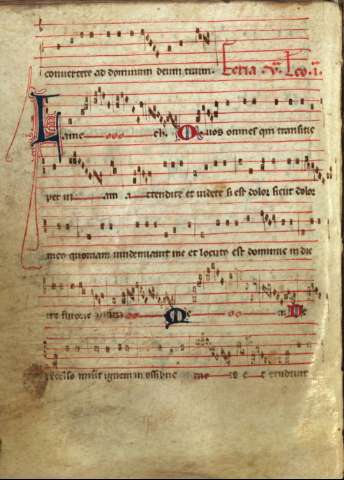 convertere ad dominum deum tuum. Feria vi. Lco. i.
Lame ch. O uos omnes qui transitis
per ui am a ttendite et uidete si est dolor sicut dolor
meus quoniam uindemiauit me ut locutus est dominus in die
ire furoris De
excelso misit ignem in ossibus et erudiuit